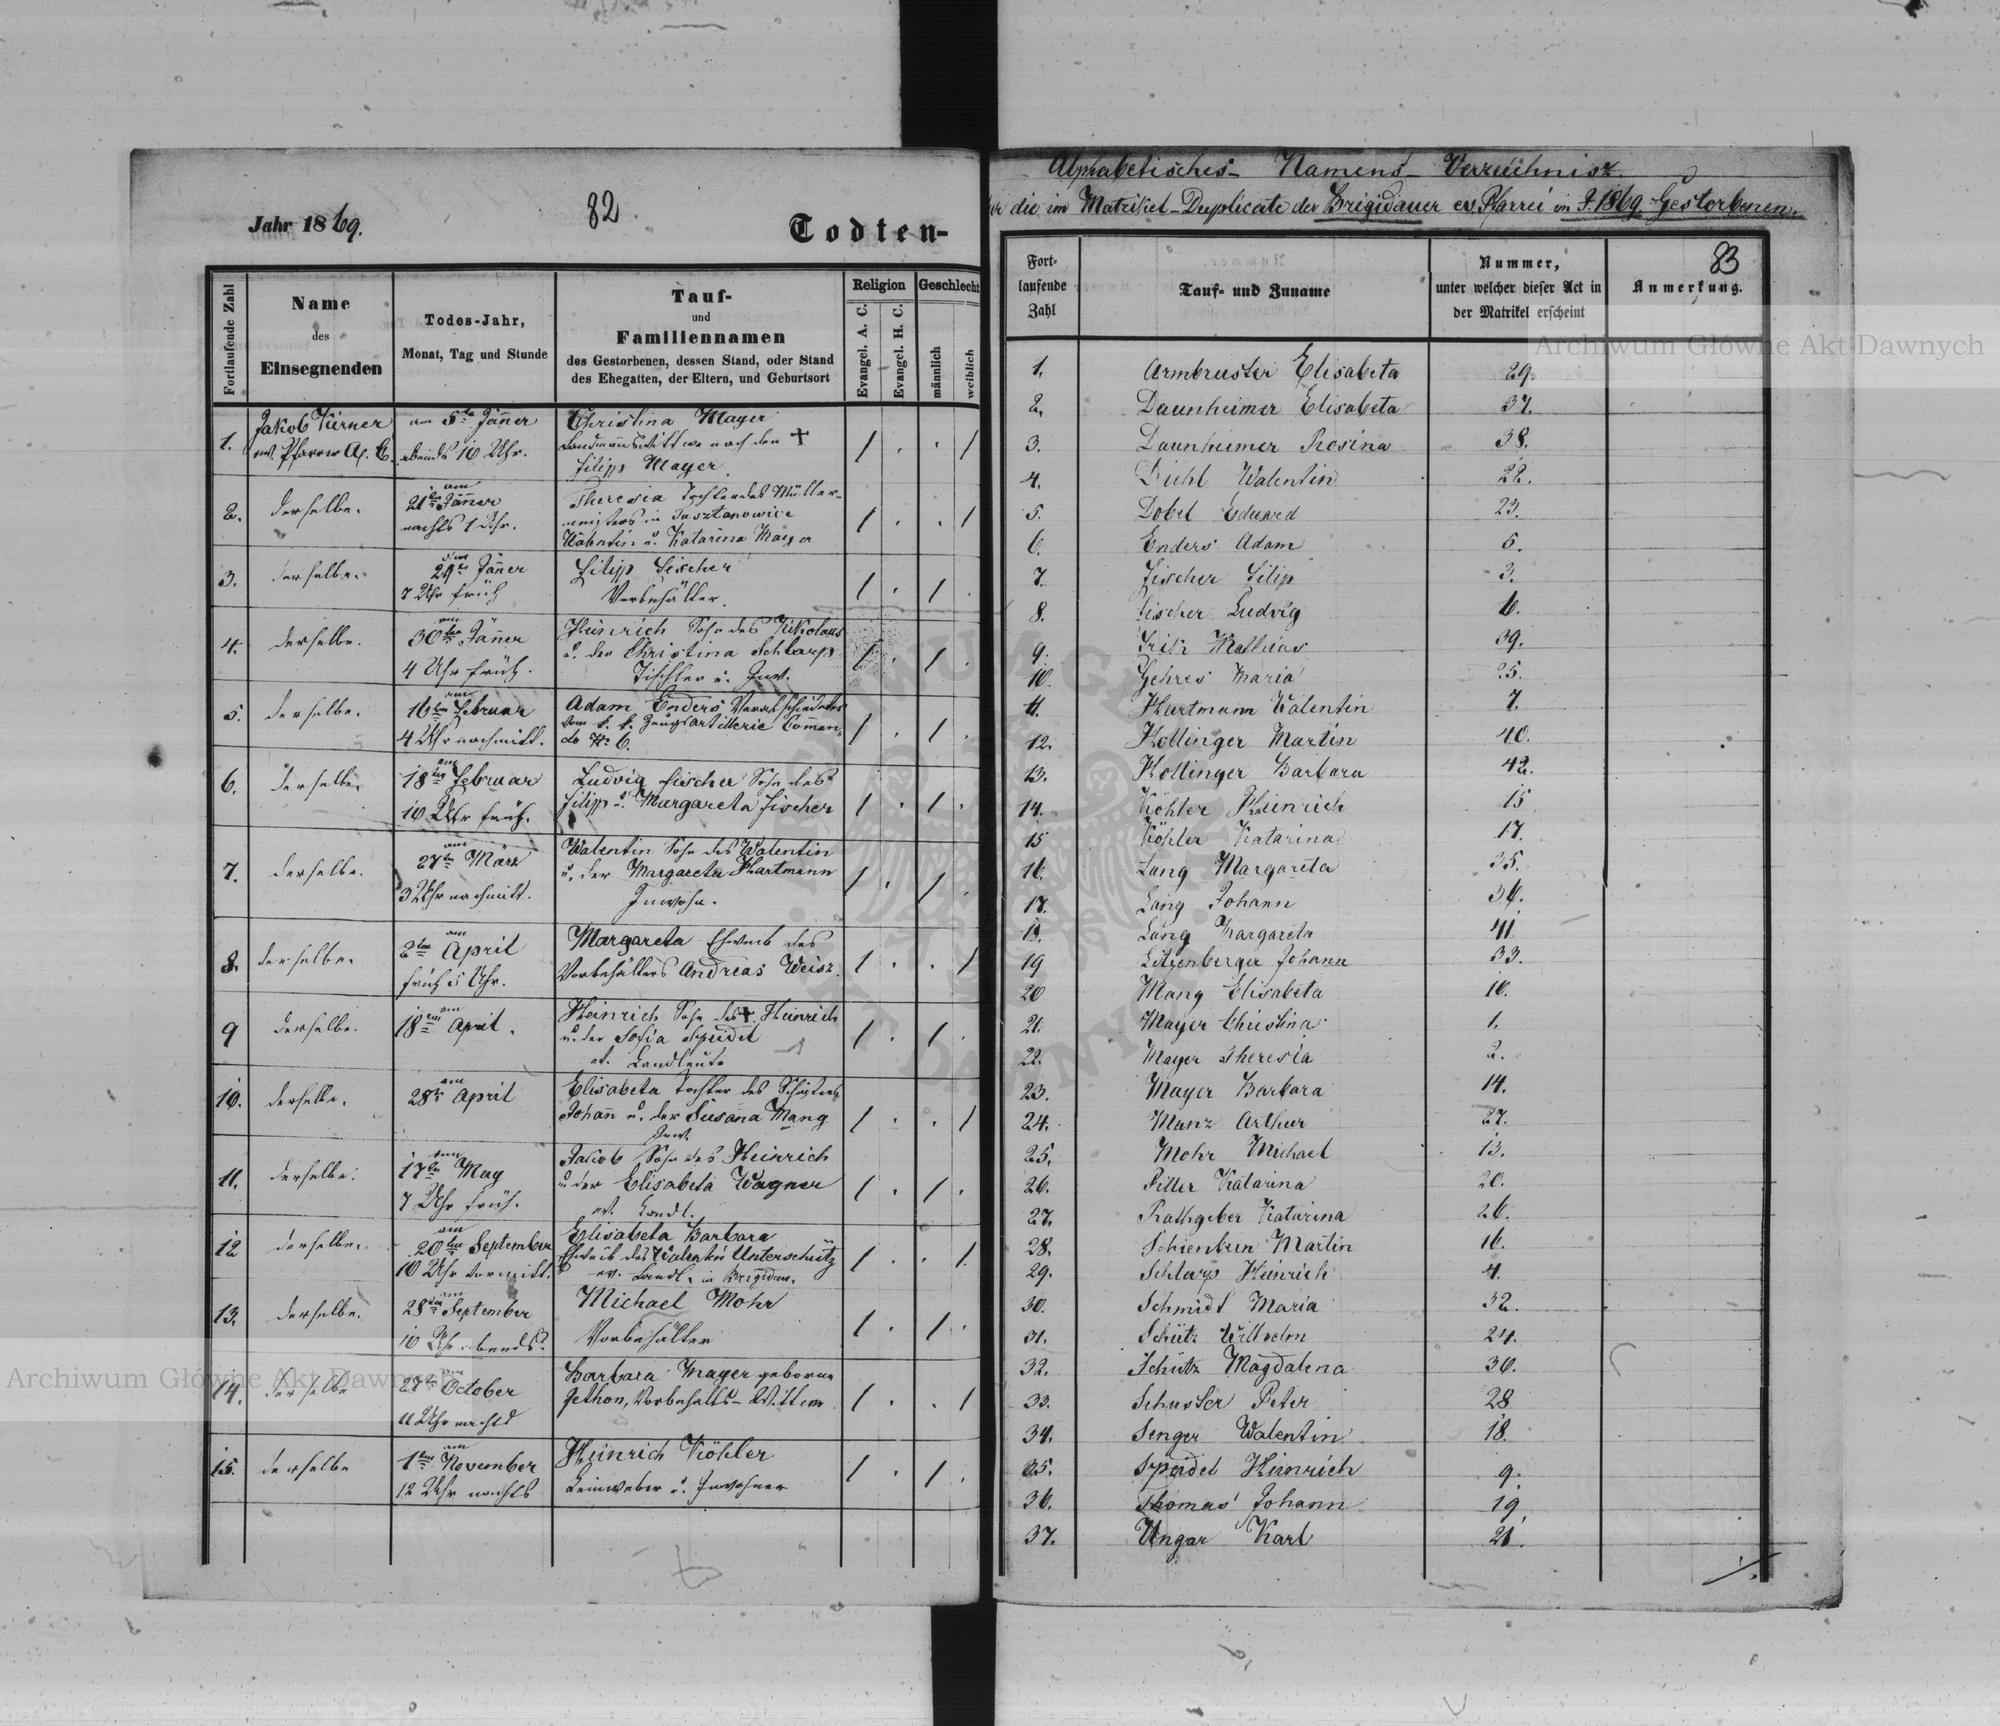 82
Jahr 1869.
Todten-
Fortlaufende Zahl
Name
des
Einsegnenden
Todes-Jahr,
Monat, Tag und Stunde
Tauf-
und
Familiennamen
des Gestorbenen, dessen Stand, oder Stand
des Ehegatten, der Eltern, und Geburtsort
Religion
Evangel. A. C.
Evangel. H. C.
Geschlecht
männlich
weiblich
1.
Jakob
ev. Pfarrer A. C.
am 5te Jäner
abends 10 Uhr.
Christina Mayer
Landmannswittwe nach den +
Filipp Mayer
2.
derselbe.
am
21te Jäner
nachts 1 Uhr.
Theresia Tochter des Müller-
meisters in
Valentin u. Katarina Mayer
3.
derselbe.
am
29te Jäner
7 Uhr früh
Filip Fischer
Vorbehälter.
4.
derselbe.
am
30te Jäner
4 Uhr früh.
Heinrich Sohn des Nikolaus
u. der Christina Schlarp
Tischler u. Inw.
5.
derselbe.
am
16ten Februar
4 Uhr nachmitt.
Adam Enders Verabschiedeter
vom k. k. Zeugsartillerie Comman-
do No 6.
6.
derselbe.
am
18ten Februar
10 Uhr früh.
Ludvig Fischer Sohn des
Filip u. Margareta Fischer
7.
derselbe.
am
27te März
3 Uhr nachmitt.
Walentin Sohn des Walentin
u. der Margareta Hartmann
Inwohn.
8.
derselbe.
am
2ten April
früh 5 Uhr.
Margareta Eheweib des
Vorbehälters Andreas Weisz.
9
derselbe.
am
18ten April.
Heinrich Sohn des + Heinrich
u. der Sofia Speidel
ev. Landleute
10.
derselbe.
am
28te April
Elisabeta Tochter des
Johann u. der Susana Mang
Inw.
11.
derselbe.
am
17te May
7 Uhr früh.
Jakob Sohn des Heinrich
u. der Elisabeta Wagner
ev. Landl.
12
derselbe.
am
20ten September
10 Uhr vormitt.
Elisabeta Barbara
Eheweib des Valentin Unterschütz
ev. Landl. in Brigidau.
13.
derselbe.
am
28ten September
10 Uhr abends.
Michael Mohr
Vorbehälter
14.
derselbe
am
27te October
11 Uhr nachts
Barbara Mayer geborne
Gethon, Vorbehalts-Wittwe
15.
derselbe
am
1ten November
12 Uhr nachts
Heinrich Köhler
Leinweber u. Inwohner
Alphabetisches Namens-Verzeichnisz
die im Matrikel-Duplicate der Brigidauer ev. Pfarrei im J. 1869 Gestorbenen.
83
Fort-
laufende
Zahl
Tauf- und Zuname
Nummer,
unter welcher dieser Act in
der Matrikel erscheint
Anmerkung.
1. Armbruster Elisabeta 29.
2. Daunheimer Elisabeta 37.
3. Daunheimer Rosina 38.
4. Diehl Walentin 22.
5. Dobel Eduard 23.
6. Enders Adam 5.
7. Fischer Filip 3.
8. Fischer Ludvig 6.
9. Frik Mathias 39.
10. Gehres Maria 25.
11. Hartmann Valentin 7.
12. Hollinger Martin 40.
13. Hollinger Barbara 42.
14. Köhler Heinrich 15
15 Köhler Katarina 17.
16. Lang Margareta 35.
17. Lang Johann 36.
18. Lang Margareta 41
19 Litzenberger Johann 33.
20 Mang Elisabeta 10.
21. Mayer Christina 1.
22. Mayer Theresia 2.
23. Mayer Barbara 14.
24. Manz Arthur 27.
25. Mohr Michael 13.
26. Piller Katarina 20.
27. Rathgeber Katarina 26.
28. Schienbein Martin 16.
29. Schlarp Heinrich 4.
30. Schmidt Maria 32.
31. Schütz Wilhelm 24.
32. Schütz Magdalena 30.
33. Schuster Peter 28
34. Senger Walentin 18.
35. Speidel Heinrich 9.
36. Thomas Johann 19
37. Ungar Karl 21.
Archiwum Główne Akt Dawnych
Archiwum Główne Akt Dawnych